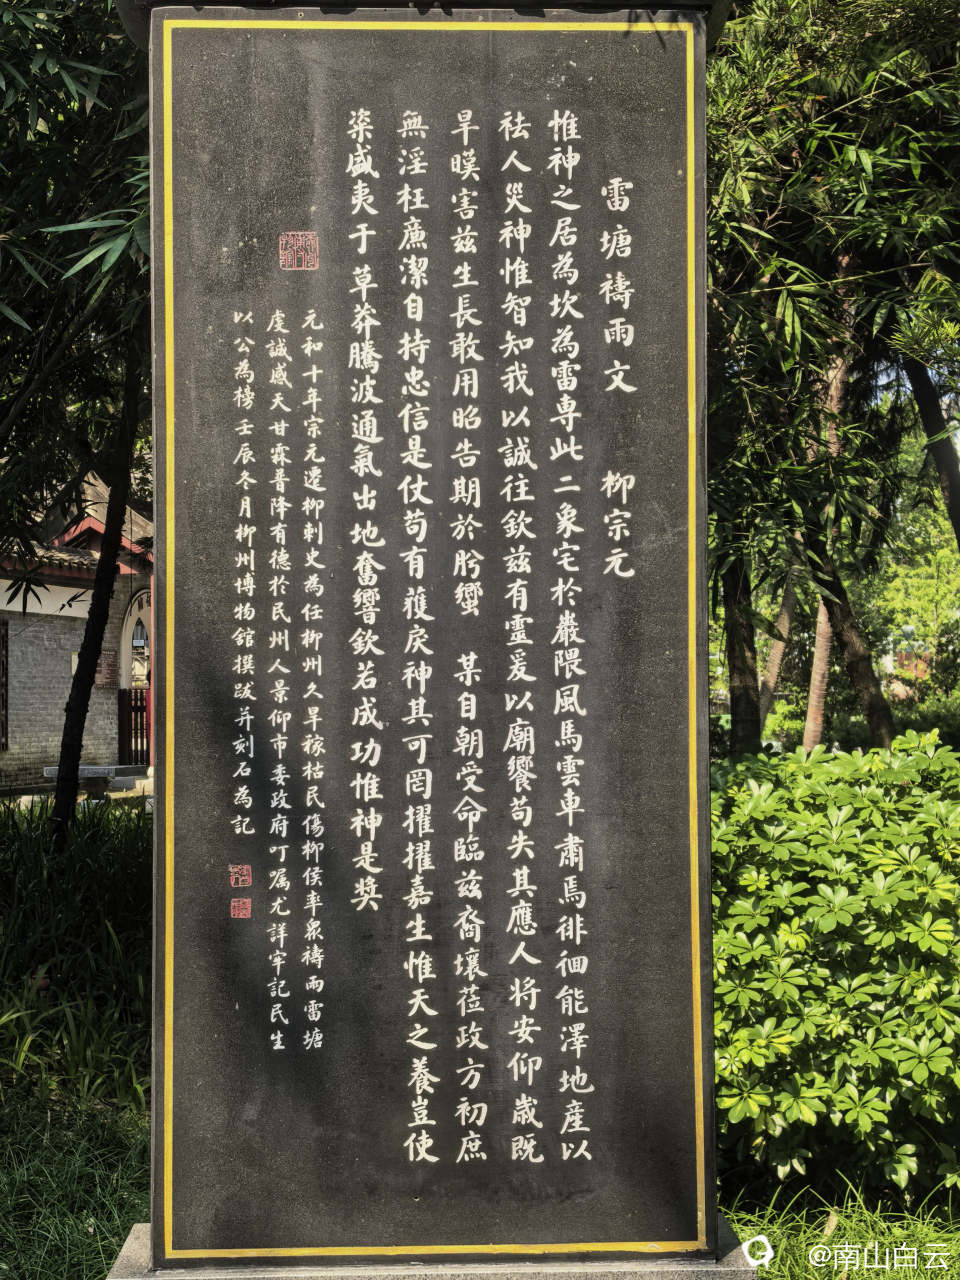 雷塘禱雨文 柳宗元
惟神之居為坎為雷専此二象宅於巖隈風馬雲車肅焉徘徊能澤地産以
祛人災神惟智知我以誠往欽兹有靈爰以廟饗苟失其應人将安仰歲既
旱暵害兹生長敢用昭告期於肹蠁 某自朝受命臨兹裔壤莅政方初庶
無淫枉廉潔自持忠信是仗苟有獲戾神其可罔擢擢嘉生惟天之養豈使
粢盛夷于草莽騰波通氣出地奮響欽若成功惟神是奖
元和十年宗元遷柳刺史為任柳州久旱稼枯民傷柳侯率衆禱雨雷塘
虔誠感天甘霖普降有德於民州人景仰市委政府叮嘱尤詳牢記民生
以公為榜壬辰冬月柳州博物館撰跋并刻石為記
@南山白云